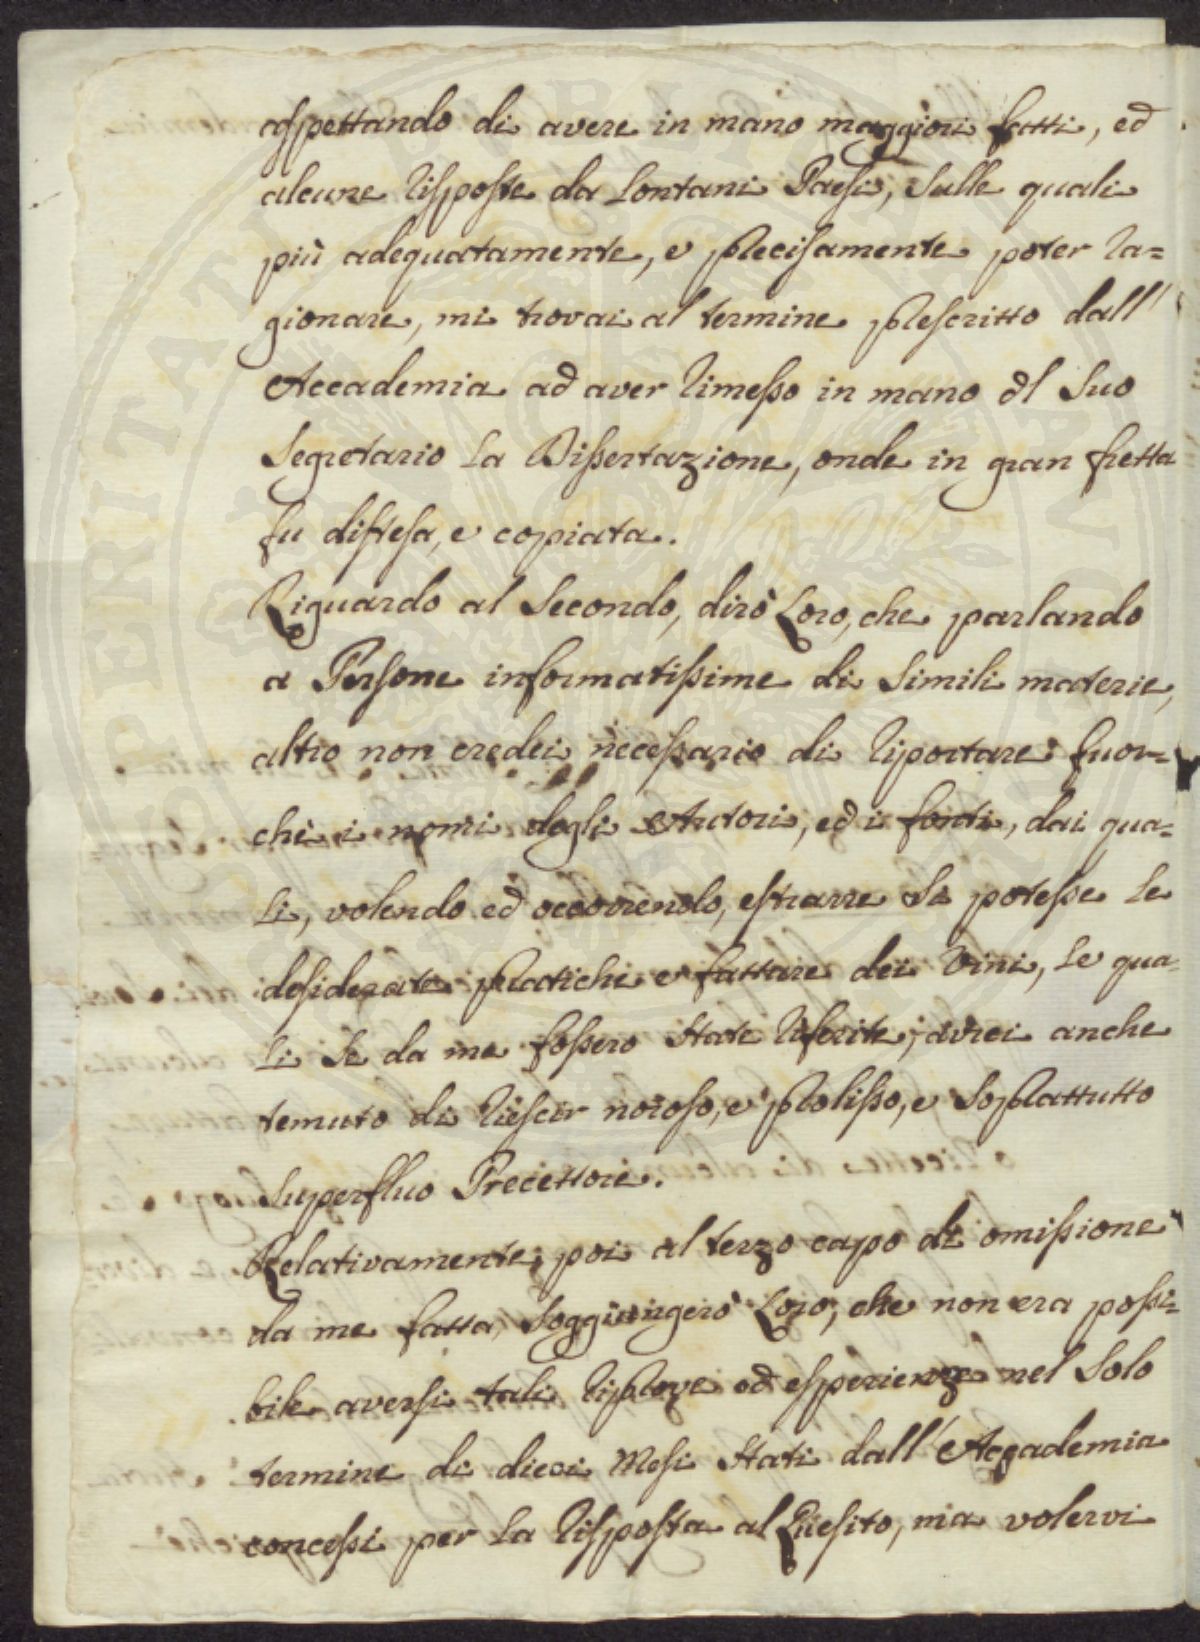 aspettando di avere in mano maggiori fatti, ed
alcune risposte da Lontani Paesi, Sulle quali
più adequatamente, e precisamente poter ra=
gionare, mi trovai al termine prescritto dall'
Accademia ad aver rimesso in mano dl Suo
Segretario La Dissertazione, onde in gran fretta
fu distesa, e copiata.
Riguardo al Secondo, dirò Loro, che parlando
a Persone informatissime di Simili materie,
altro non credei necessario di riportare fuor=
chi i nomi degli Autori, ed i fonti, dai qua=
li, volendo ed occorrendo, estrarre Si potesse Le
desiderate pratiche e fatture dei Vini, Le qua
Li Se da me fossero State riferite, avrei anche
temuto di riescir noioso, e prolisso, e Soprattutto
Superfluo Precettore.
Relativamente poi al terzo capo di omissione
da me fatta, Soggiungerò Loro, che non era possi=
bile aversi tali riprove ed esperienze nel Solo
termine di dieci Mesi Stati dall'Accademia
concessi per La risposta al Quesito, ma volervi
PERITAT